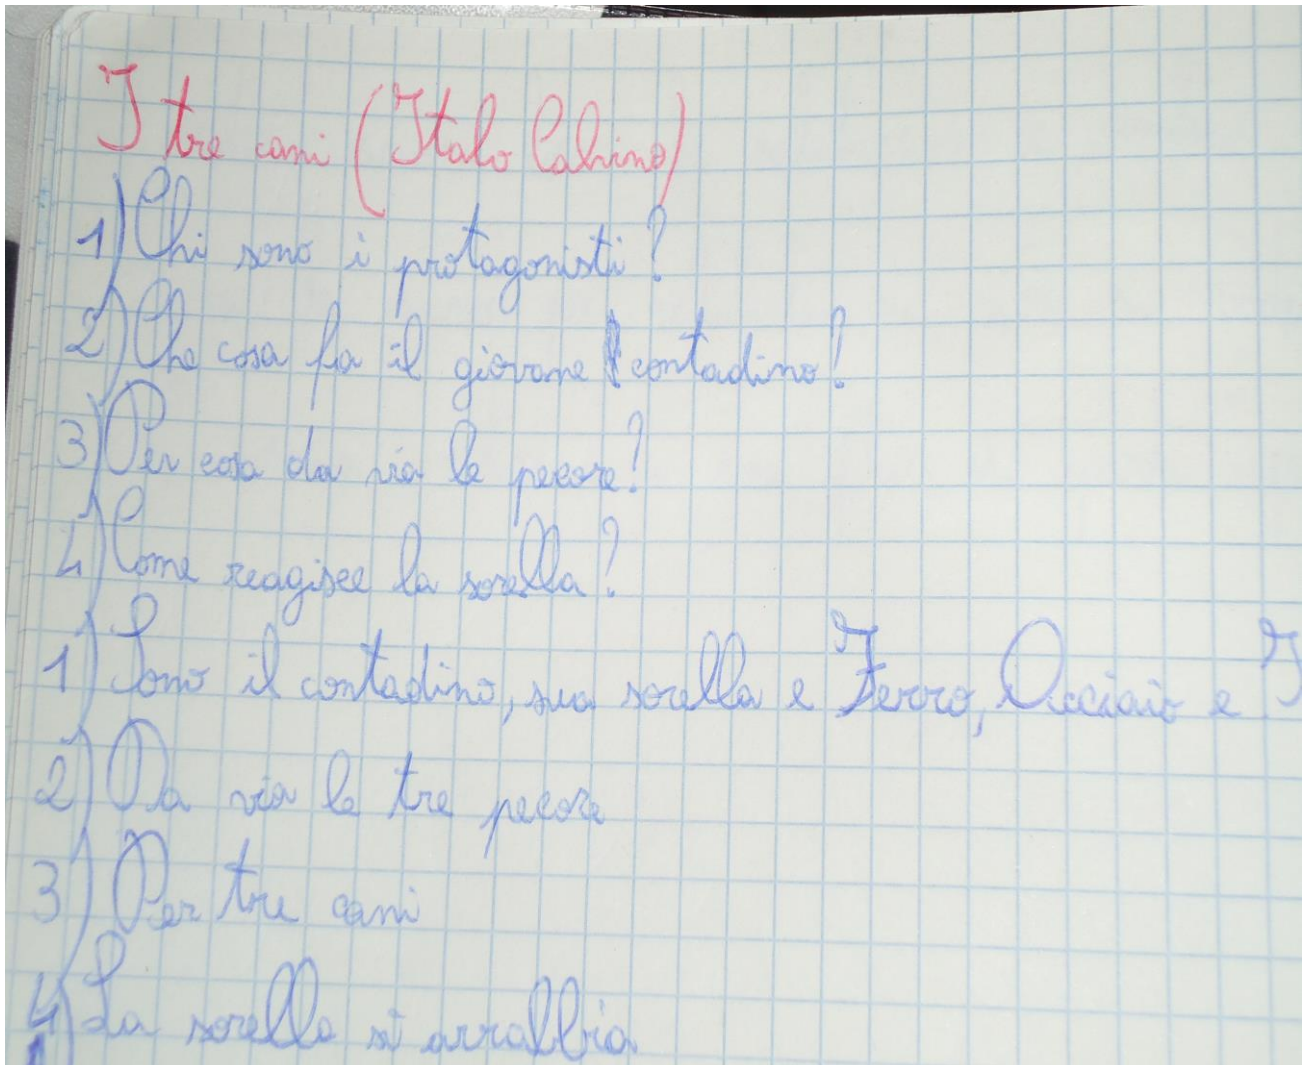 I tre cani (Italo Calvino)
1) Chi sono i protagonisti?
2) Che cosa fa il giovane contadino?
3) Per cosa da via le pecore?
4) Come reagisce la sorella?
1) Sono il contadino, sua sorella e Ferro, Acciaio e
2) Da via le tre pecore
3) Per tre cani
4) La sorella si arrabbia